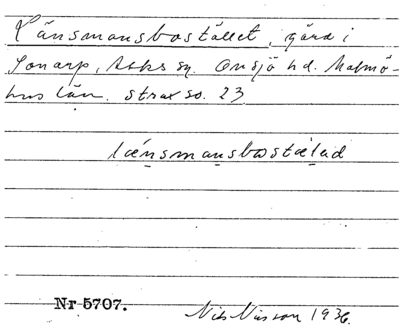 Länsmansbostället, gård i
Sonarp, Asks sn. Onsjö hd. Malmö-
hus län. strax so. 23
lænsmansbostælad
Nr 5707.
Nils Nilsson 1936.